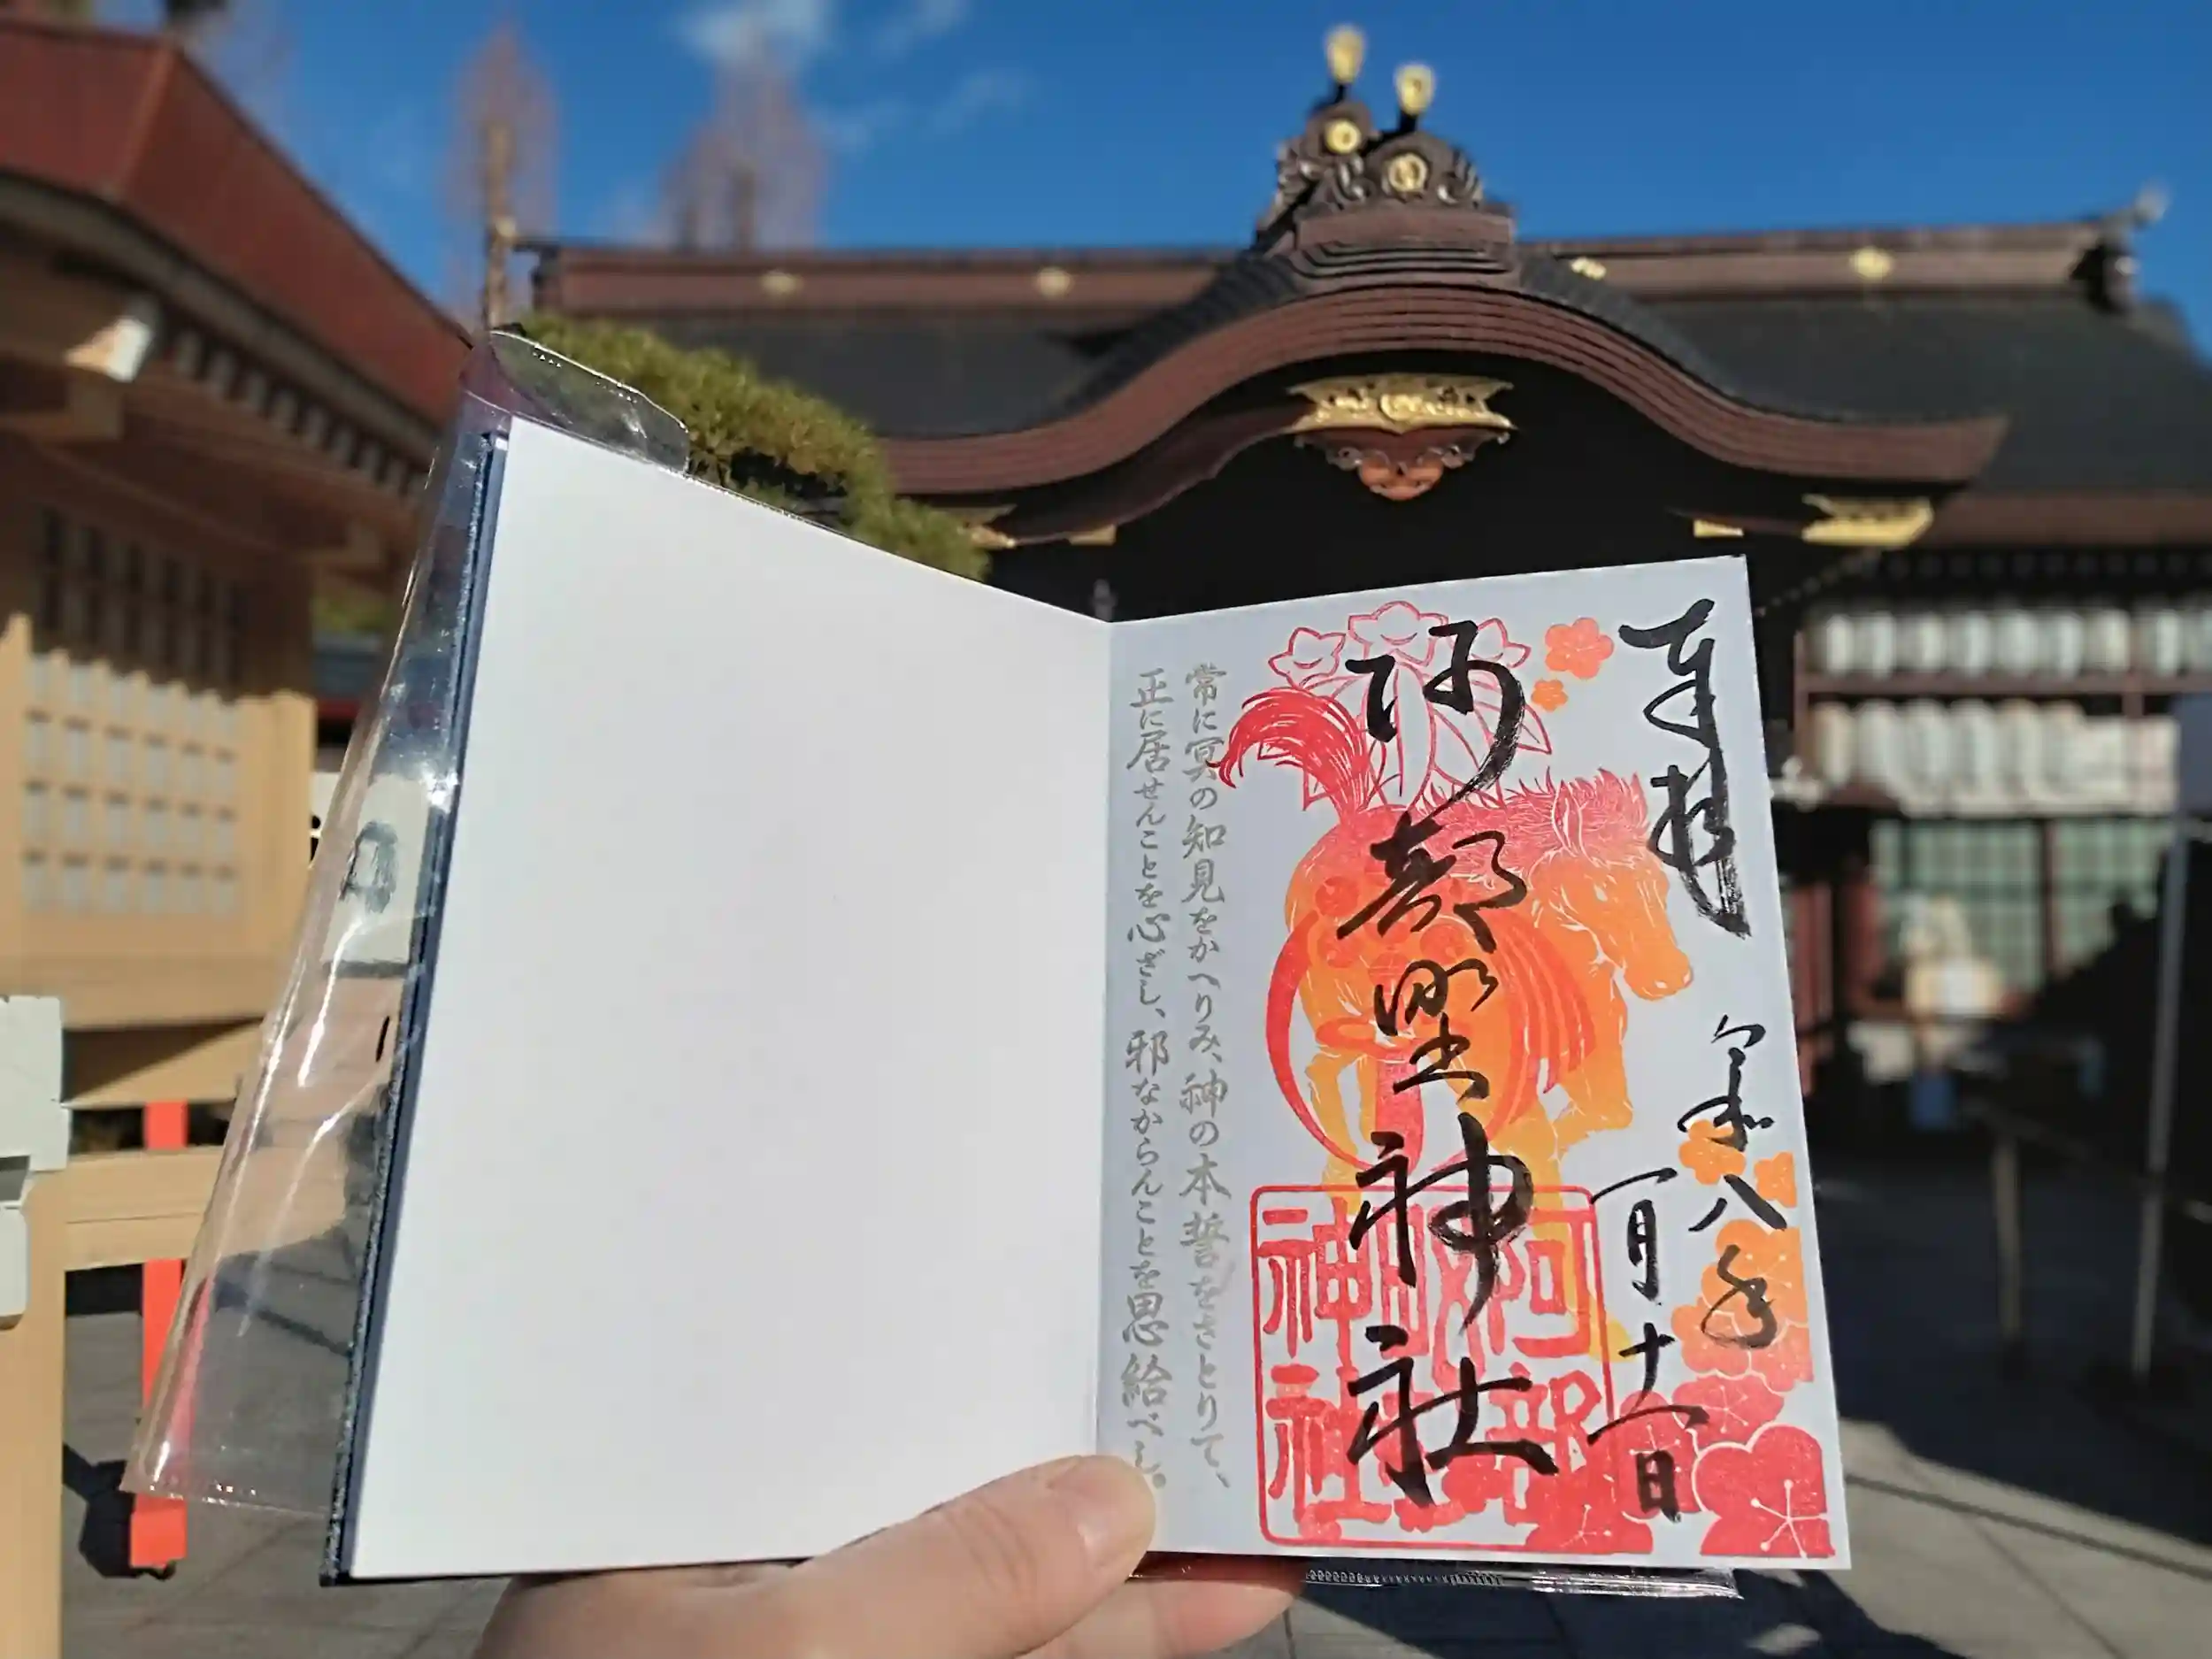 奉拝
令和八年
一月十一日
阿部野神社
阿部
野
神社
常に冥の知見をかへりみ、神の本誓をさとりて、
正に居せんことを心ざし、邪なからんことを思給べし。